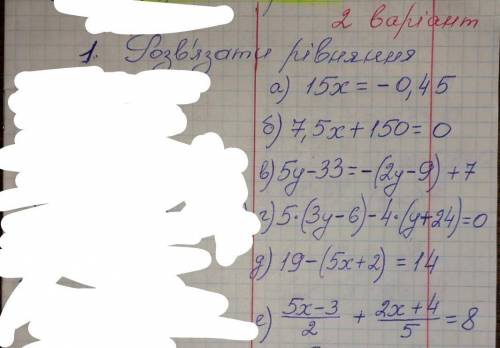 2 варіант
1. Розв'язати рівняння
а) 15x = -0,45
б) 7,5x + 150 = 0
в) 5y - 33 = -(2y - 9) + 7
г) 5·(3y - 6) - 4·(y + 24) = 0
д) 19 - (5x + 2) = 14
е) (5x - 3)/2 + (2x + 4)/5 = 8